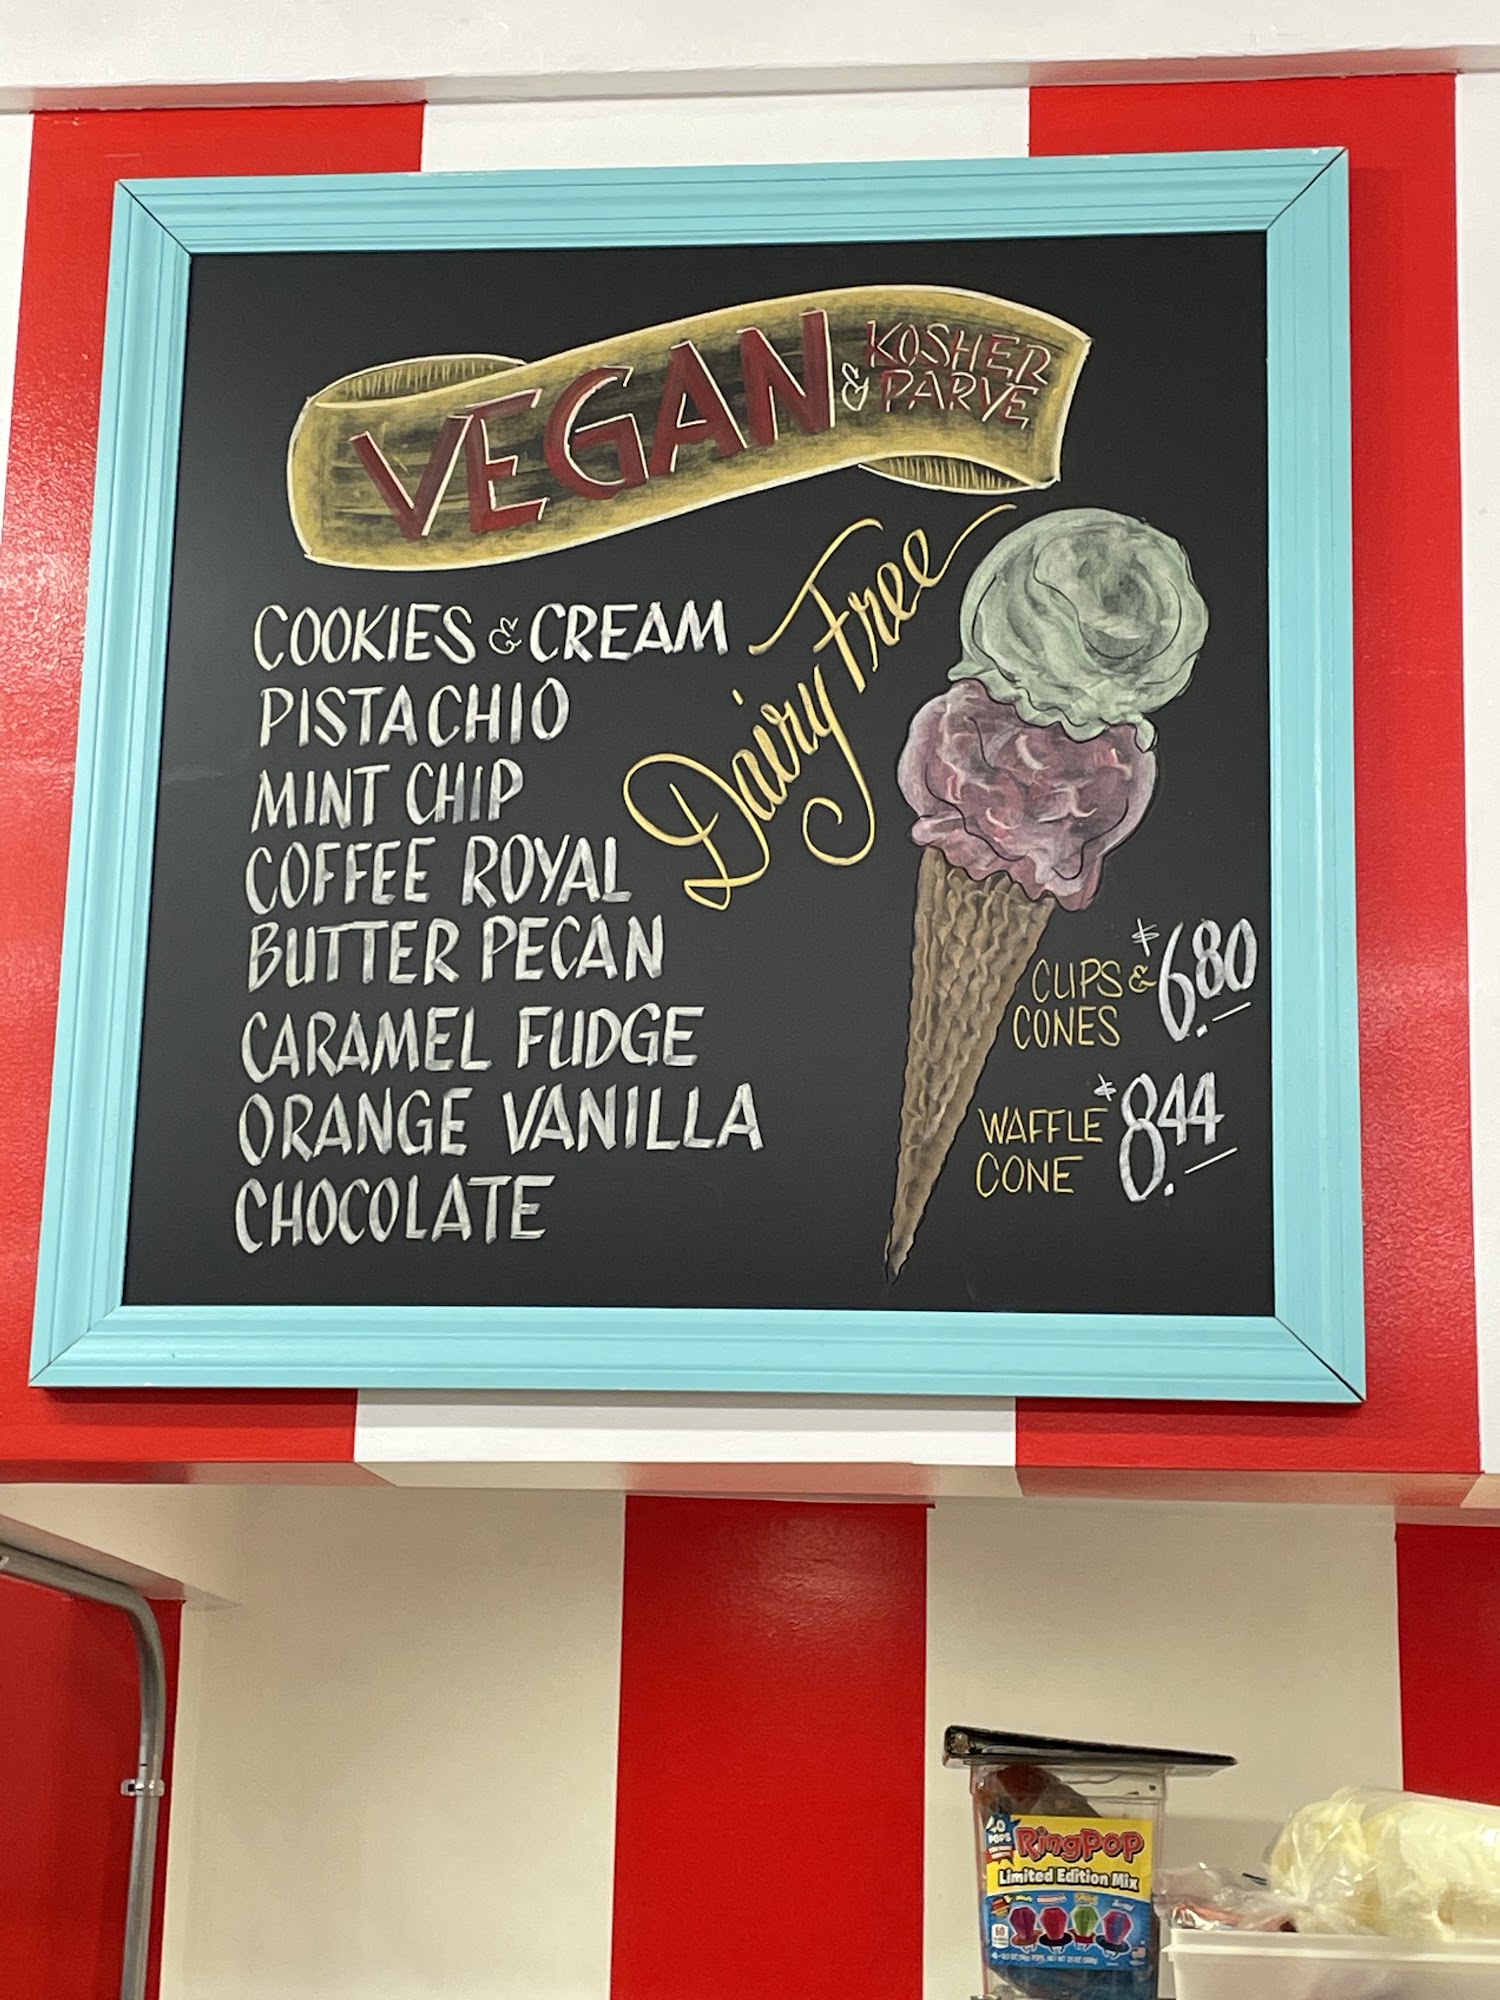 VEGAN & KOSHER
PARVE
Dairy Free
COOKIES & CREAM
PISTACHIO
MINT CHIP
COFFEE ROYAL
BUTTER PECAN
CARAMEL FUDGE
ORANGE VANILLA
CHOCOLATE
CUPS & $6.80
CONES
WAFFLE $8.44
CONE
40
POPS
RingPop
Limited Edition Mix